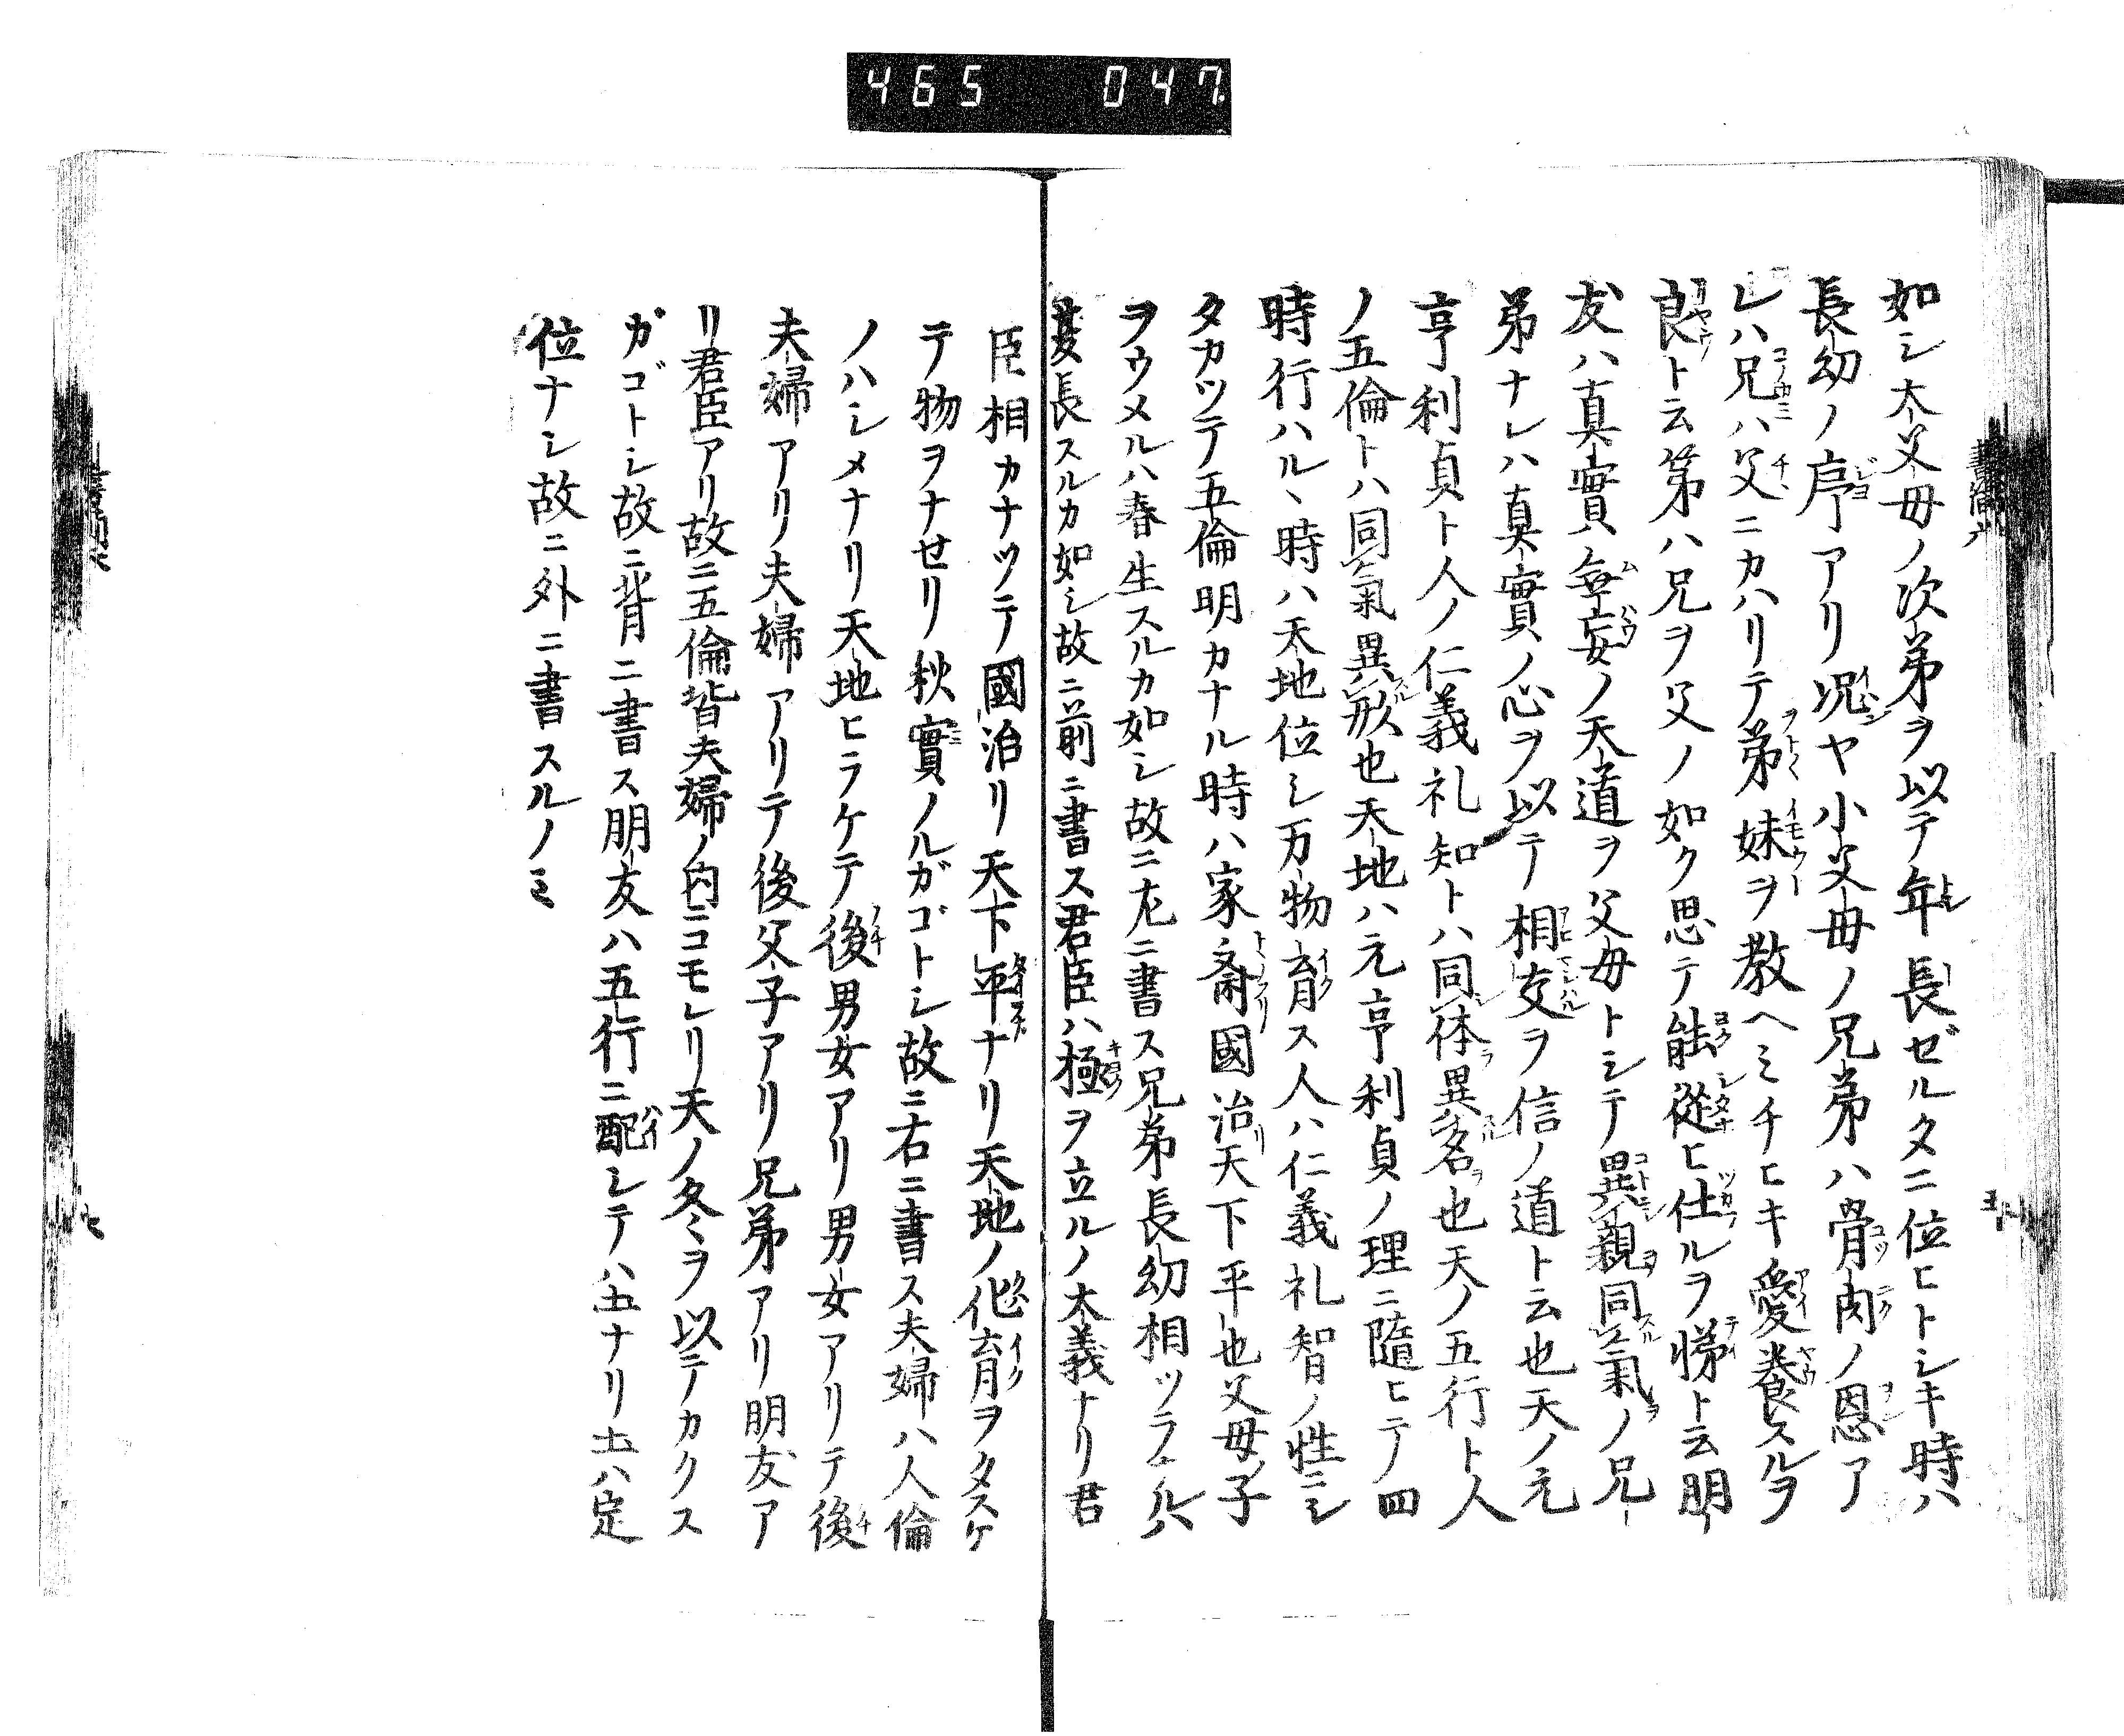 465 047
如シ大父母ノ次第ヲ以テ年長ゼルタニ位ヒトシキ時ハ
長幼ノ序アリ况ヤ小父母ノ兄弟ハ骨肉ノ恩ア
レハ兄ハ父ニカハリテ弟妹ヲ教ヘミチヒキ愛養スルヲ
良ト云第ハ兄ヲ父ノ如ク思テ能從ヒ仕ルヲ悌ト云朋
友ハ真實無妄ノ天道ヲ父母トシテ異親同氣ノ兄
弟ナレハ真實ノ心ヲ以テ相交ヲ信ノ道ト云也天ノ元
亨利貞ト人ノ仁義礼知トハ同体異名也天ノ五行ト人
ノ五倫トハ同氣異形也天地ハ元亨利貞ノ理ニ隨ヒテ四
時行ハルヽ時ハ天地位シ万物育ス人ハ仁義礼智ノ性ニシ
タカツテ五倫明カナル時ハ家齊國治天下平也父母子
ヲウメルハ春生スルカ如シ故ニ左ニ書ス兄弟長幼相ツラナルハ
夏長スルカ如シ故ニ前ニ書ス君臣ハ極ヲ立ルノ大義ナリ君
臣相カナツテ國治リ天下平ナリ天地ノ化育ヲタスケ
テ物ヲナセリ秋實ノルガゴトシ故ニ右ニ書ス夫婦ハ人倫
ノハシメナリ天地ヒラケテ後男女アリ男女アリテ後
夫婦アリ夫婦アリテ後父子アリ兄弟アリ朋友ア
リ君臣アリ故ニ五倫皆夫婦ノ内ニコモレリ天ノ冬ヲ以テカクス
ガゴトシ故ニ背ニ書ス朋友ハ五行ニ配シテハ土ナリ土ハ定
位ナシ故ニ外ニ書スルノミ